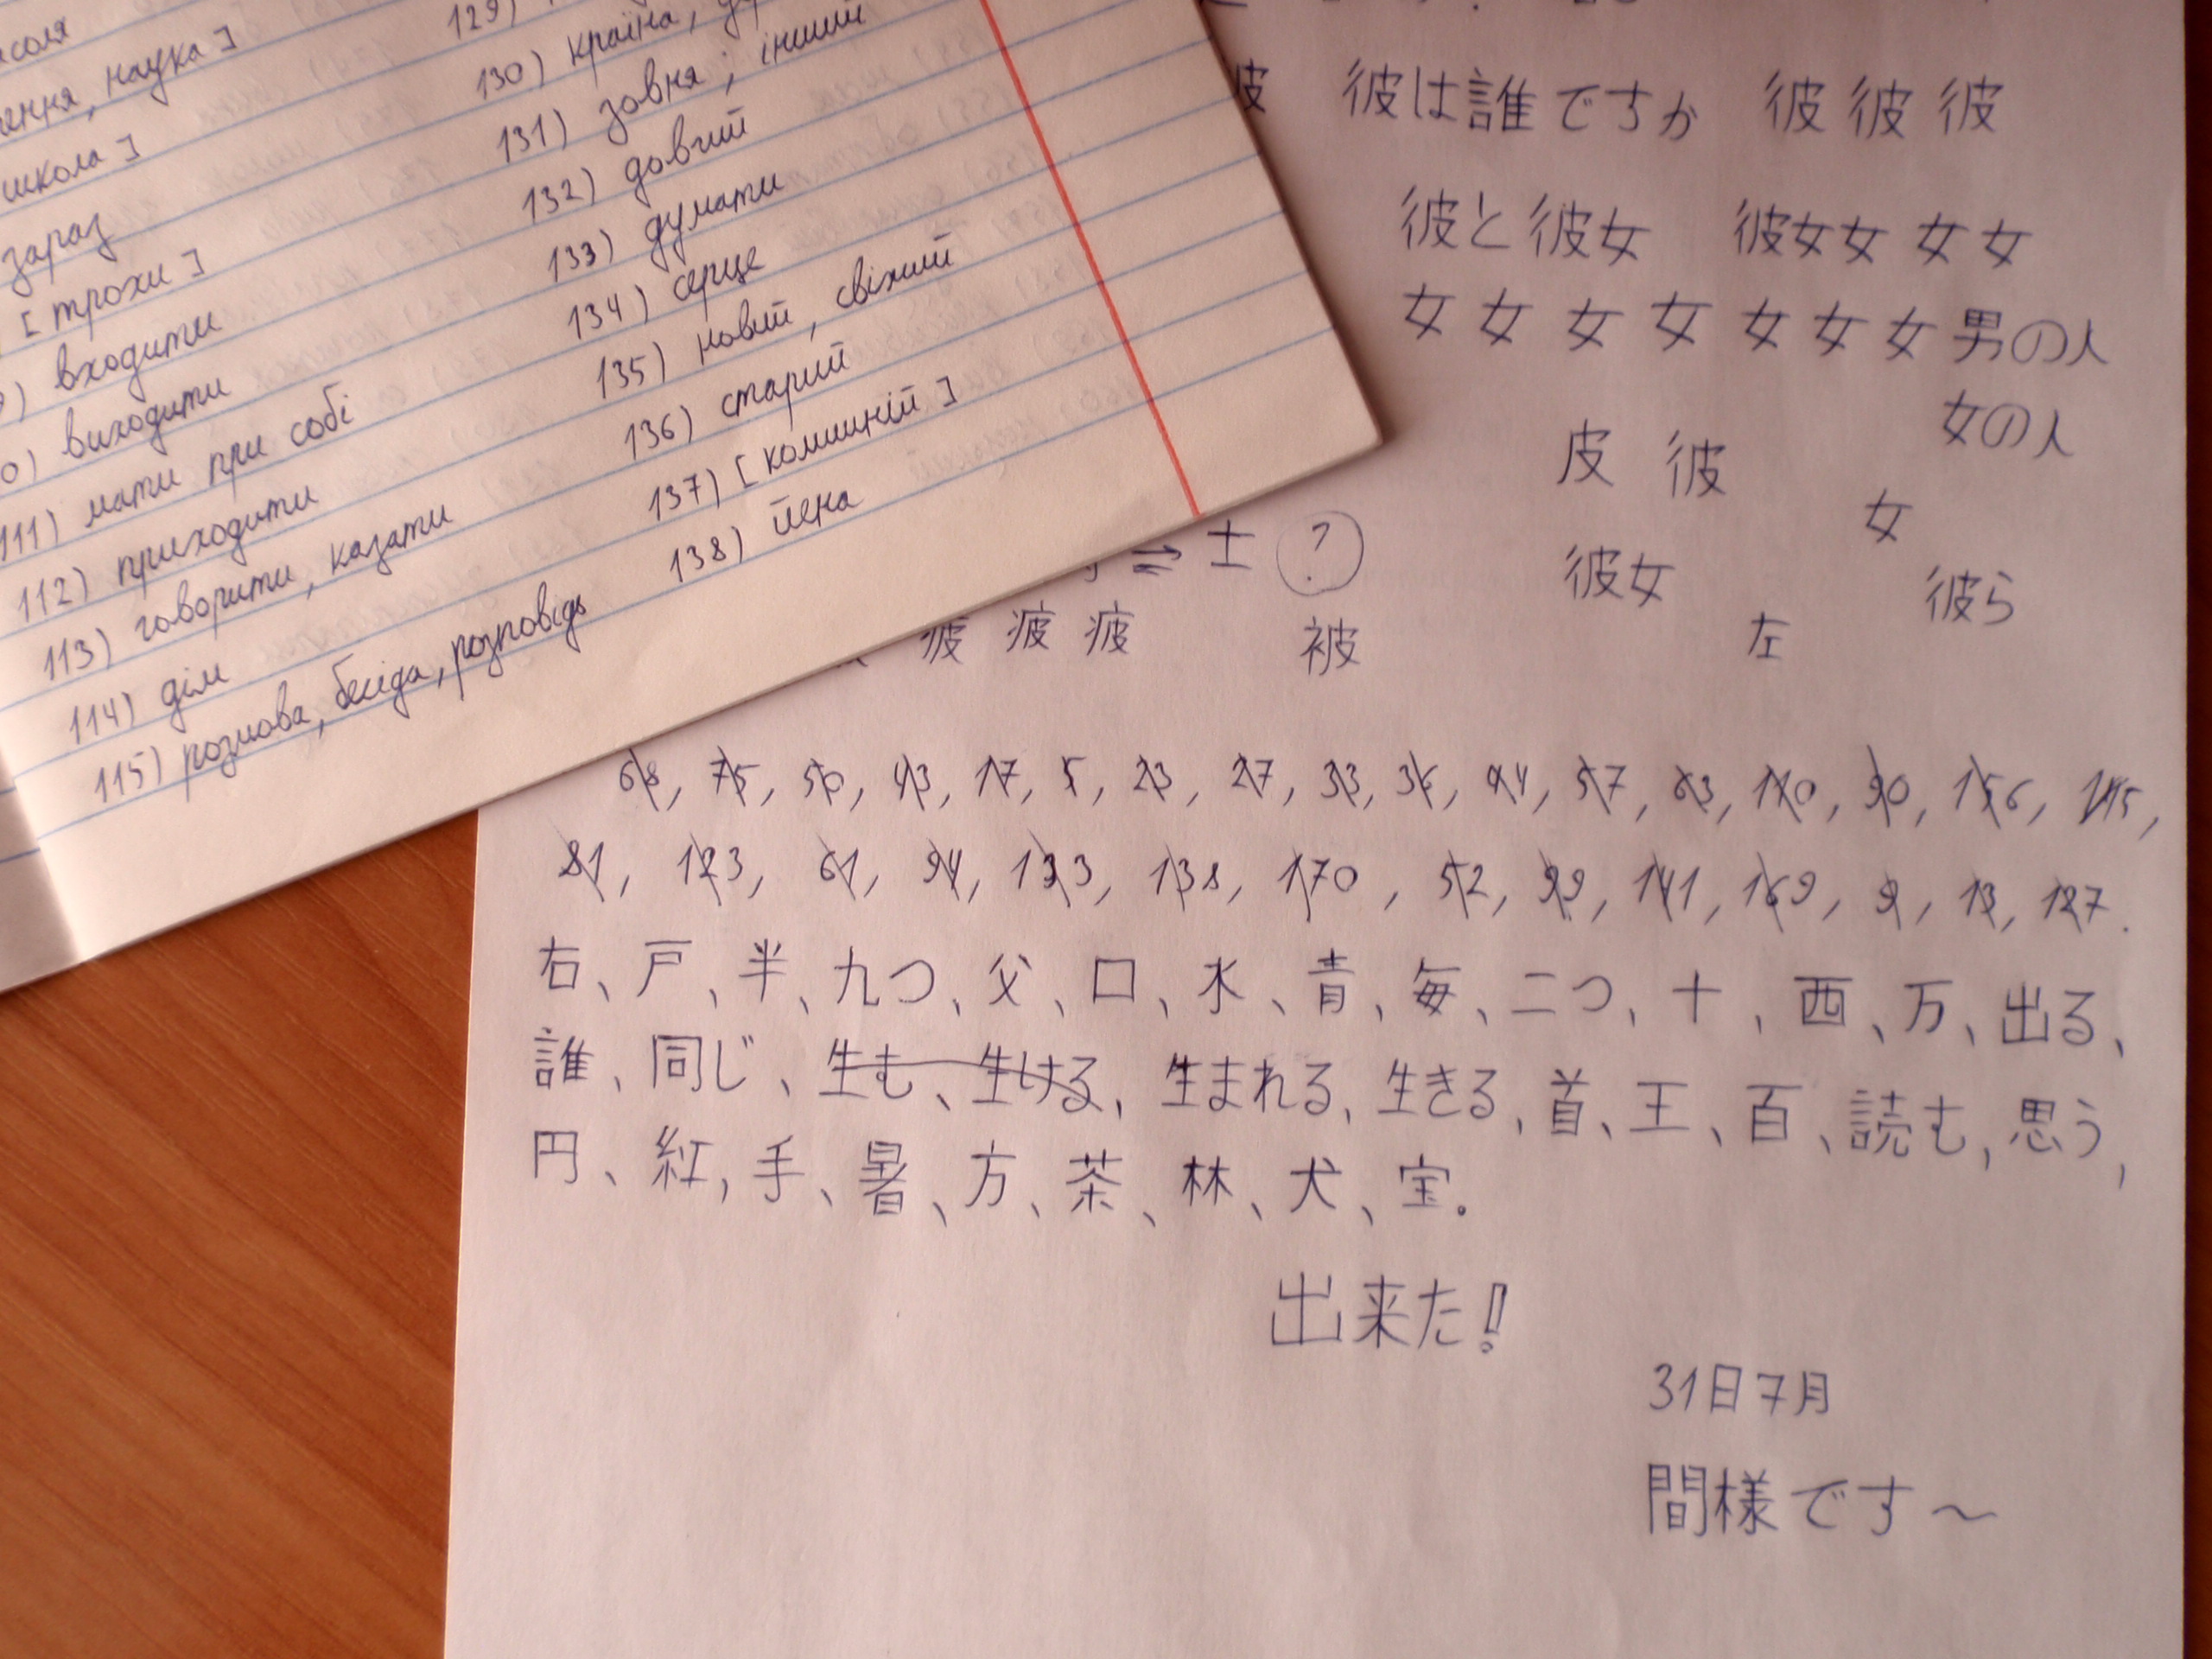 наука]
школа]
зараз
[трохи]
входити
виходити
111) мати при собі
112) приходити
113) говорити, казати
114) дім
115) розмова, бесіда, розповідь
129)
130) країна,
131) зовня; інший
132) довгий
133) думати
134) серце
135) новий, свіжий
136) старий
137) [комишній]
138) йена
彼は誰ですか 彼 彼 彼
彼と彼女 彼女女 女 女
女 女 女 女 女 女 女 男の人
女の人
皮 彼
女
彼女
彼ら
左
⇌ 士 ?
疲 疲 疲 被
68, 75, 50, 43, 17, 5, 23, 27, 33, 36, 44, 57, 63, 110, 90, 156, 145,
81, 123, 61, 94, 133, 138, 170, 52, 99, 141, 169, 9, 13, 127.
右、戸、半、九つ、父、口、水、青、毎、二つ、十、西、万、出る、
誰、同じ、生む、生ける、生まれる、生きる、首、王、百、読む、思う、
円、紅、手、暑、方、茶、林、犬、宝。
出来た!
31日7月
間様です～